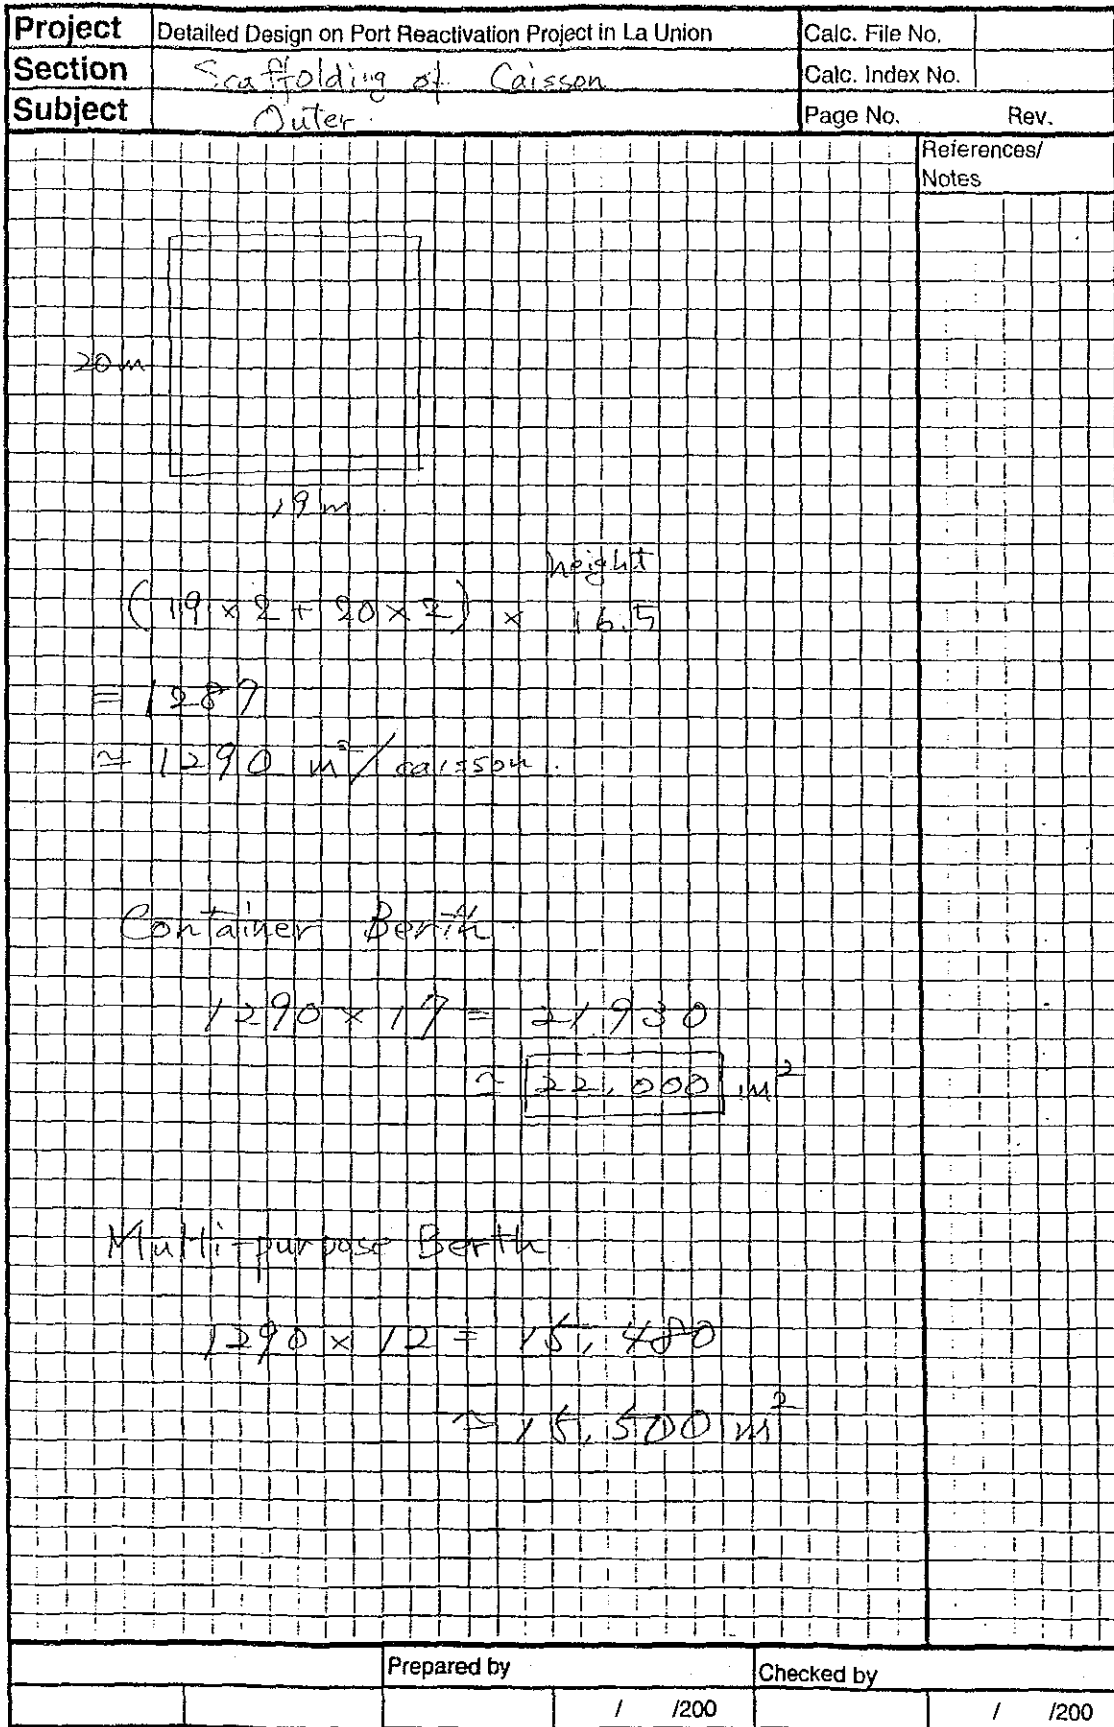 Project Detailed Design on Port Reactivation Project in La Union Calc. File No.
Section Scaffolding of Caisson Calc. Index No.
Subject Outer. Page No. Rev.
References/
Notes
20m
19m
height
(19 × 2 + 20 × 2) × 16.5
= 1287
≃ 1290 m²/caisson.
Container Berth
1290 × 17 = 21930
≃ 22,000 m²
Multi-purpose Berth
1290 × 12 = 15,480
≃ 15,500 m²
Prepared by Checked by
/ /200 / /200